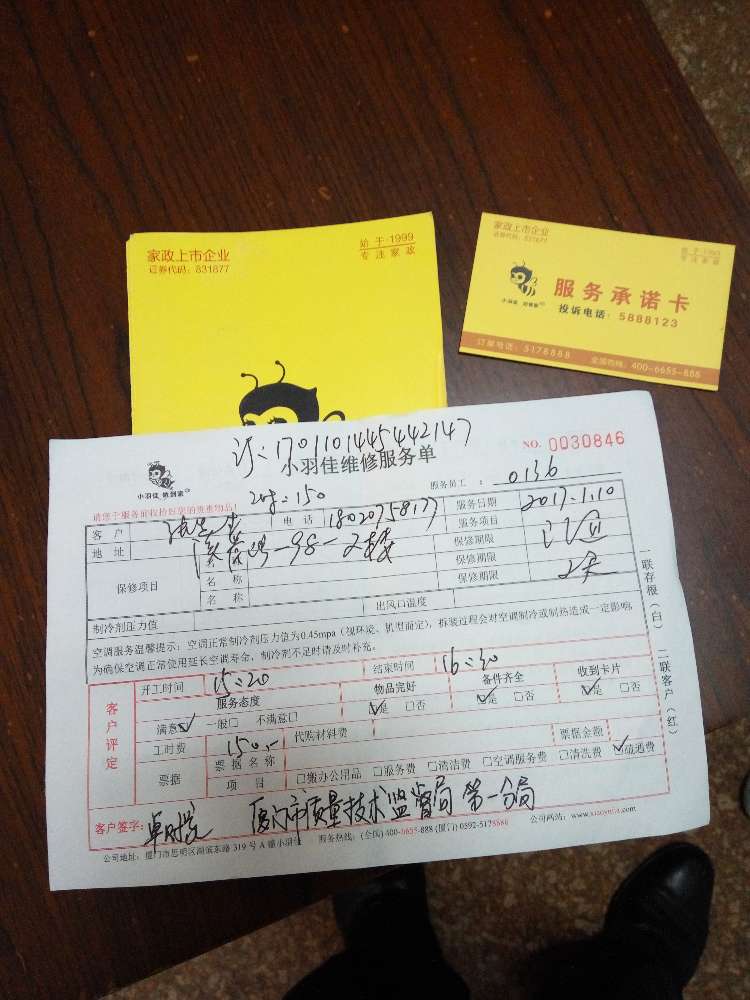 家政上市企业
证券代码：831877
始于·1999
专注家政
家政上市企业
证券代码：831877
始于·1999
专注家政
小羽佳
服务承诺卡
投诉电话：5888123
订单电话：5176888 全国热线：400-6655-888
订：1701101445442147
NO. 0030846
小羽佳 做到家
小羽佳维修服务单
服务员工：0136
请您于服务前收拾好您的贵重物品！
2时：150
客户 电话 18020758177 服务日期 2017.1.10
地址 -98-2楼 服务项目
保修项目 保修期限
名称 保修期限
名称 保修期限 2天
制冷剂压力值 出风口温度
空调服务温馨提示：空调正常制冷剂压力值为0.45mpa（视环境、机型而定），拆装过程会对空调制冷或制热造成一定影响，
为确保空调正常使用延长空调寿命，制冷剂不足时请及时补充。
一联存根（白） 二联客户（红）
客户评定
开工时间 15:20 结束时间 16:20
服务态度 物品完好 备件齐全 收到卡片
满意☑ 一般□ 不满意□ ☑是 □否 ☑是 □否 ☑是 □否
工时费 150.- 代购材料费 票据金额
票据 票据名称
项目 □搬办公用品 □服务费 □清洁费 □空调服务费 □清洗费 ☑疏通费
客户签字： 厦门市质量技术监督局第一分局
公司地址：厦门市思明区湖滨东路319号A幢小羽佳 服务热线：(全国) 400-6655-888 (厦门) 0592-5176888 公司网站：www.xiaoyujia.com